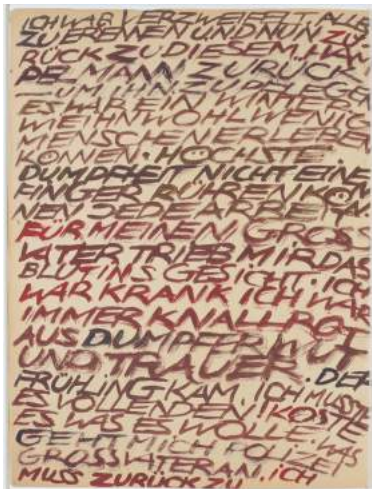 ICH WAR VERZWEIFELT, ALLE
ZU UND NUN ZU
RÜCK ZU DIESEM HAM
PELMANN ZURÜCK
UM IHN ZU PFLEGEN
ES WAR EIN WINTER
WIE IHN WOHL WENIG
MENSCHEN ERLEBEN
KÖNNEN. HÖCHSTE
DUMPFHEIT NICHT EINEN
FINGER RÜHREN KÖN
NEN. JEDE ARBEIT
FÜR MEINEN GROSS
VATER TRIEB MIR DAS
BLUT INS GESICHT. ICH
WAR KRANK ICH WAR
IMMER KNALLROT
AUS DUMPFER WUT
UND TRAUER. DER
FRÜHLING KAM. ICH MUSSTE
ES VOLLENDEN! KOSTE
ES WAS ES WOLLE. WAS
GEHT MICH POLIZEI
GROSSVATER AN. ICH
MUSS ZURÜCK ZU